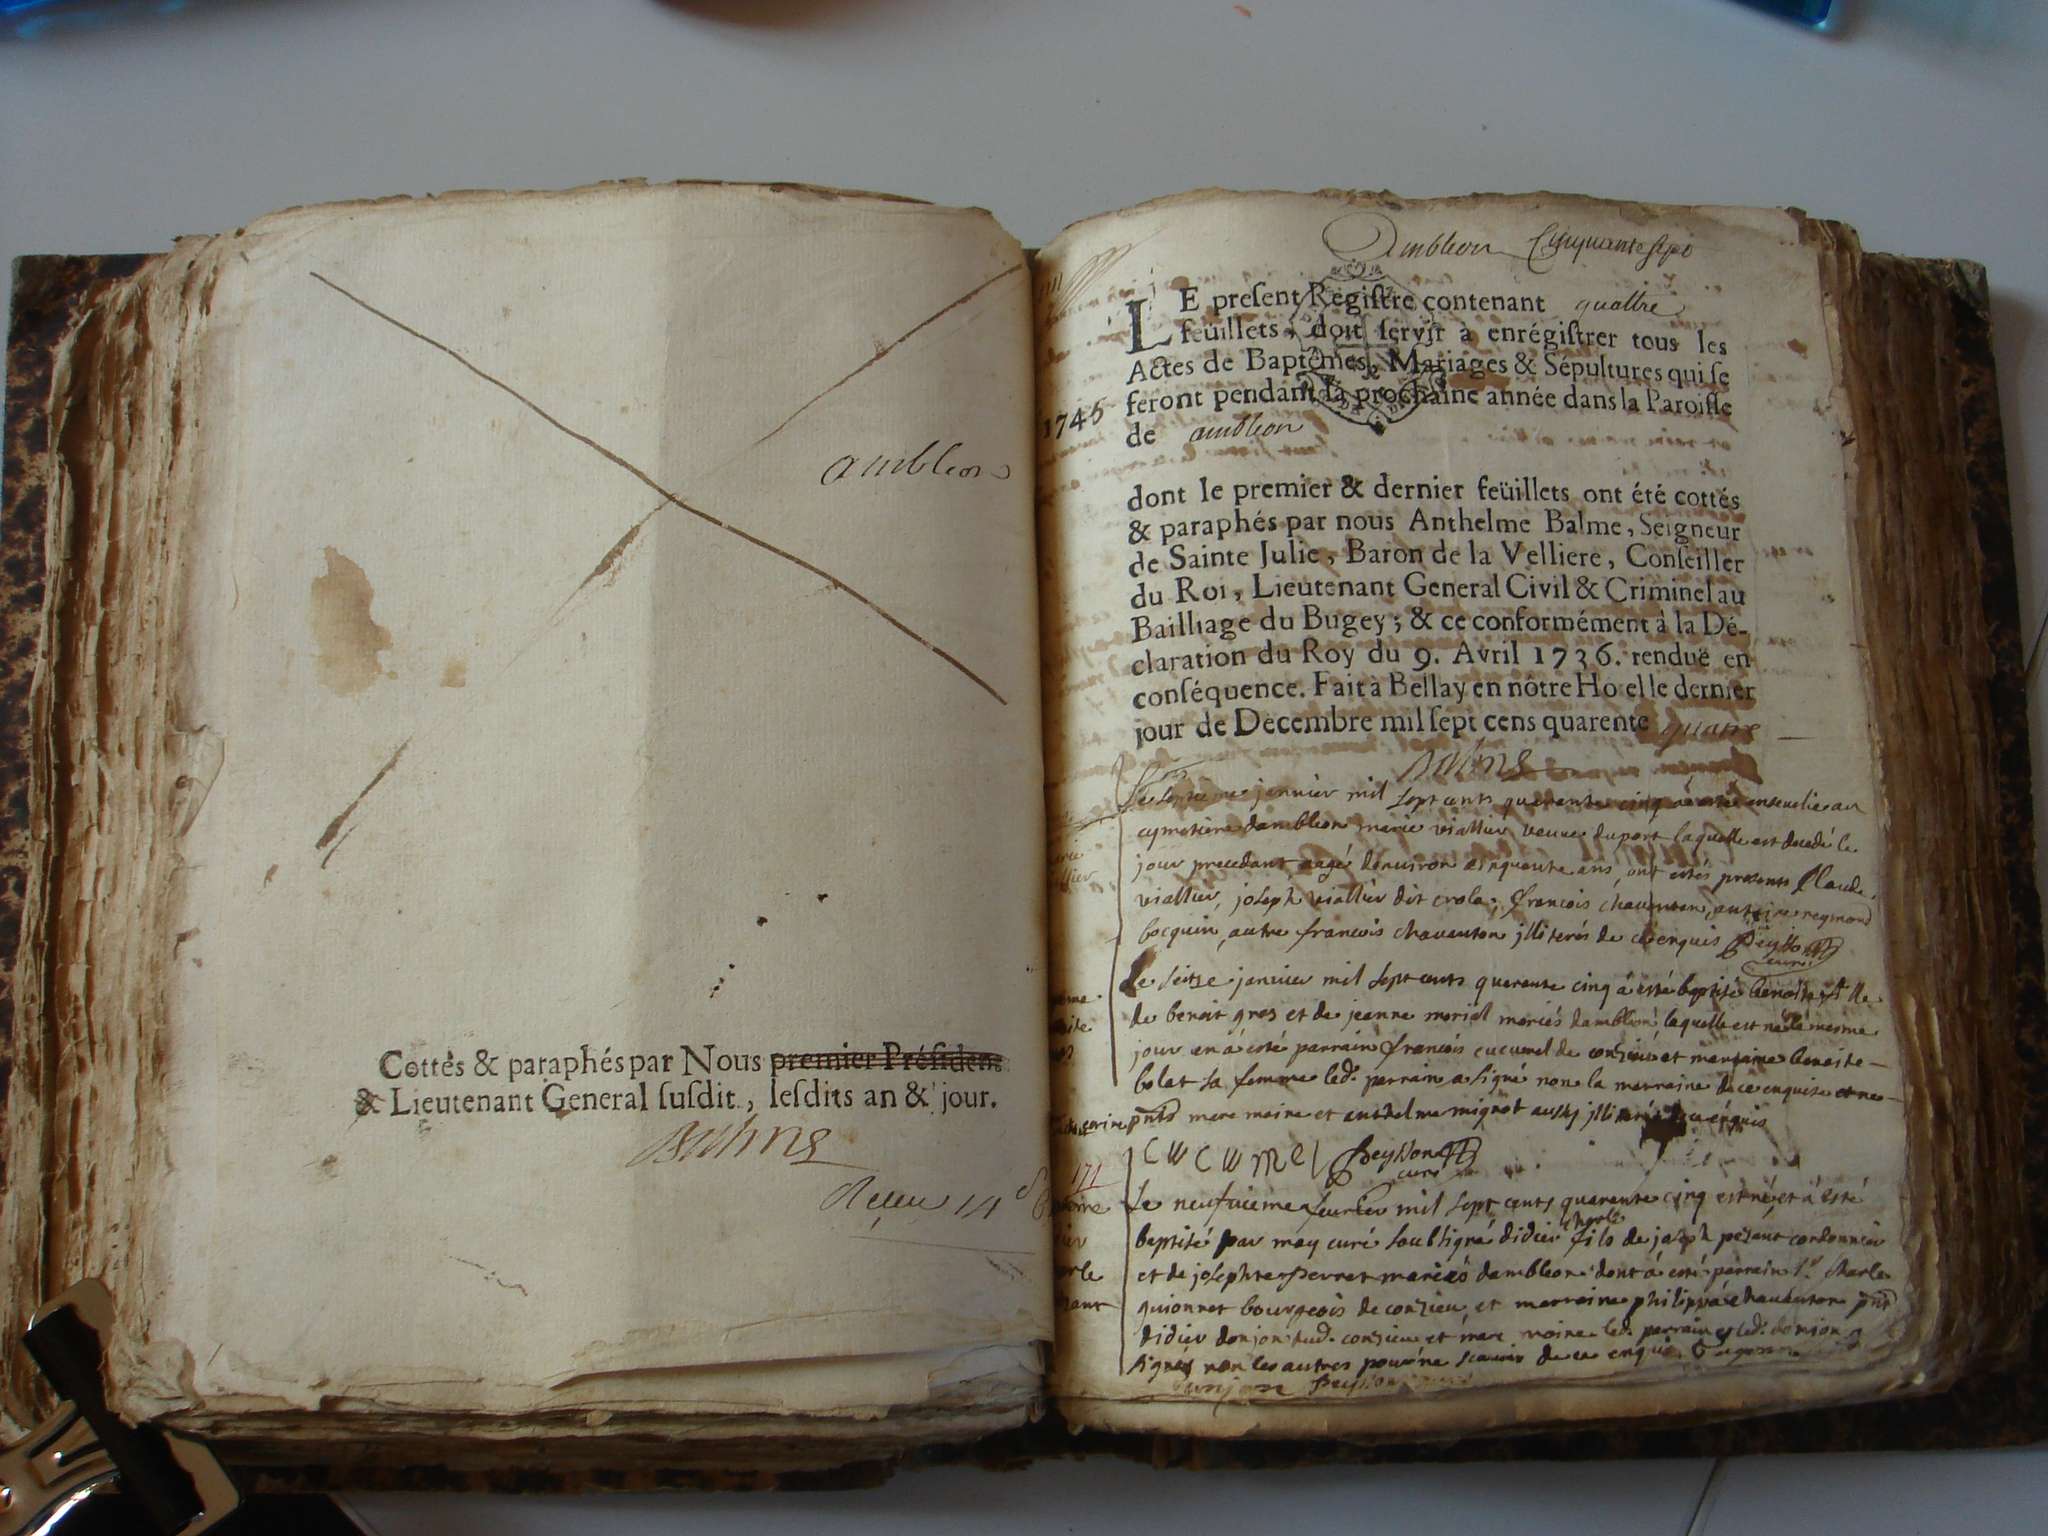 ambleon
Cottés & paraphés par Nous premier Présiden
& Lieutenant General susdit, lesdits an & jour.
Ambleon Cinquante sept
LE present Registre contenant quattre
feüillets, doit servir à enrégistrer tous les
Actes de Baptêmes, Mariages & Sépultures qui se
feront pendant la prochaine année dans la Paroisse
1745
de ambleon
dont le premier & dernier feüillets ont été cottés
& paraphés par nous Anthelme Balme, Seigneur
de Sainte Julie, Baron de la Velliere, Conseiller
du Roi, Lieutenant General Civil & Criminel au
Bailliage du Bugey; & ce conformément à la Dé-
claration du Roy du 9. Avril 1736. renduë en
conséquence. Fait à Bellay en nôtre Hotel le dernier
jour de Decembre mil sept cens quarente quatre
Le septieme janvier mil sept cents quarente cinq a esté ensevelie au
cymetiere dambleon marie viallier veuve duport laquelle est decedé le
jour precedant aagé denviron cinquente ans, ont estés presents Claude
viallier, joseph viallier dit crola, françois chaventon, antoine reymond
bocquin, autre francois chaventon illiterés de ce enquis Peysson
curé
Le seize janvier mil sept cents quarente cinq a esté baptisé benoite fille
de benoit gros et de jeanne moriel mariés dambleon, laquelle est née le mesme
jour en a esté parrain françois cucumel de conzieu et marraine benoite
bolat sa femme led. parrain a signé non la marraine de ce enquise et
pnts marc moine et anthelme mignot aussy illiterés de ce enquis
cucumel Peysson
curé
171
Le neufvieme fevrier mil sept cents quarente cinq est né et a esté
baptisé par moy curé soubsigné didier charle fils de joseph pezant cordonnier
et de josephte Perret mariés dambleon dont a esté parrain sr. charle
guionnet bourgeois de conzieu et marraine philippa chaventon pnt
didier donjon dud. conzieu et marc moine led. parrain et led. donjon
signés non les autres pour ne scavoir de ce enquis
donjon Peysson curé